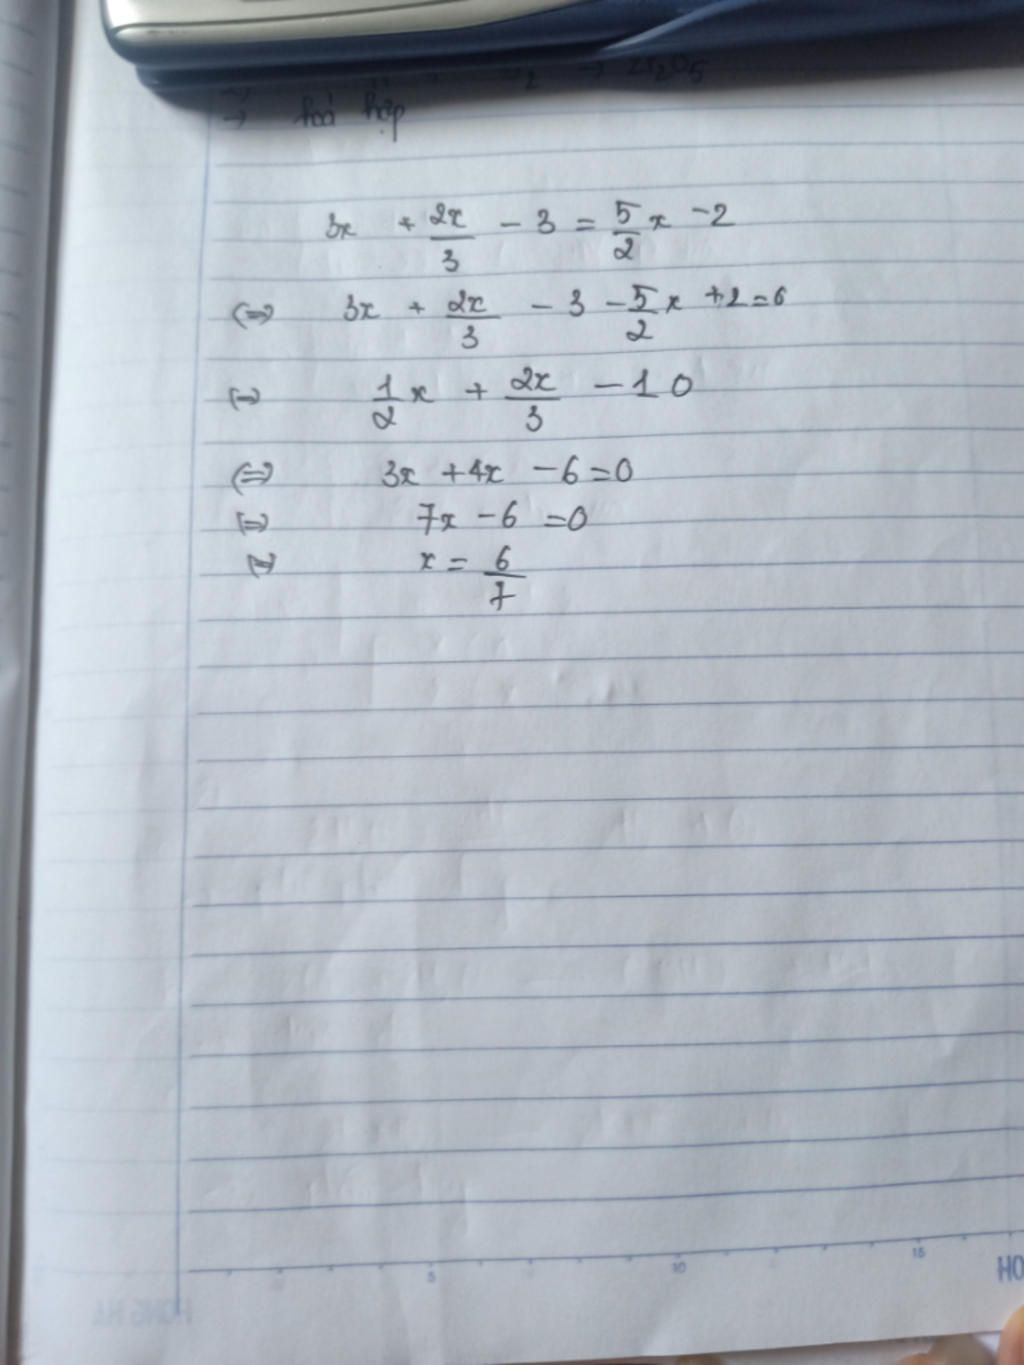 → hoá hợp
3x + 2x/3 - 3 = 5/2 x - 2
(=) 3x + 2x/3 - 3 - 5/2 x + 2 = 6
(=) 1/2 x + 2x/3 - 1 0
(=) 3x + 4x - 6 = 0
(=) 7x - 6 = 0
(=) x = 6/7
5 10 15
HO
HONG HA